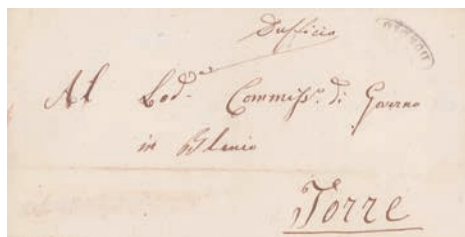 D'ufficio
Al Lod.e Commiss.o di Governo
in Blenio
Torre